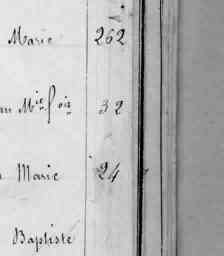 Marie 262
an M^ie f^ois 32
Marie 24
Baptiste